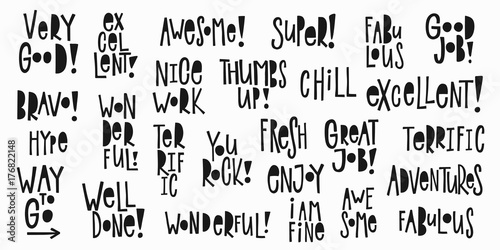 VERY
GOOD!
EX
CEL
LENT!
AWESOME!
SUPER!
FABU
LOUS
GOOD
JOB!
NICE
WORK
THUMBS
UP!
CHILL
EXCELLENT!
BRAVO!
HYPE
WON
DER
FUL!
TER
RIF
IC
YOU
ROCK!
FRESH
GREAT
JOB!
TERRIFIC
WAY
TO
GO
WELL
DONE!
WONDERFUL!
ENJOY
I AM
FINE
AWE
SOME
ADVENTURES
FABULOUS
176822148